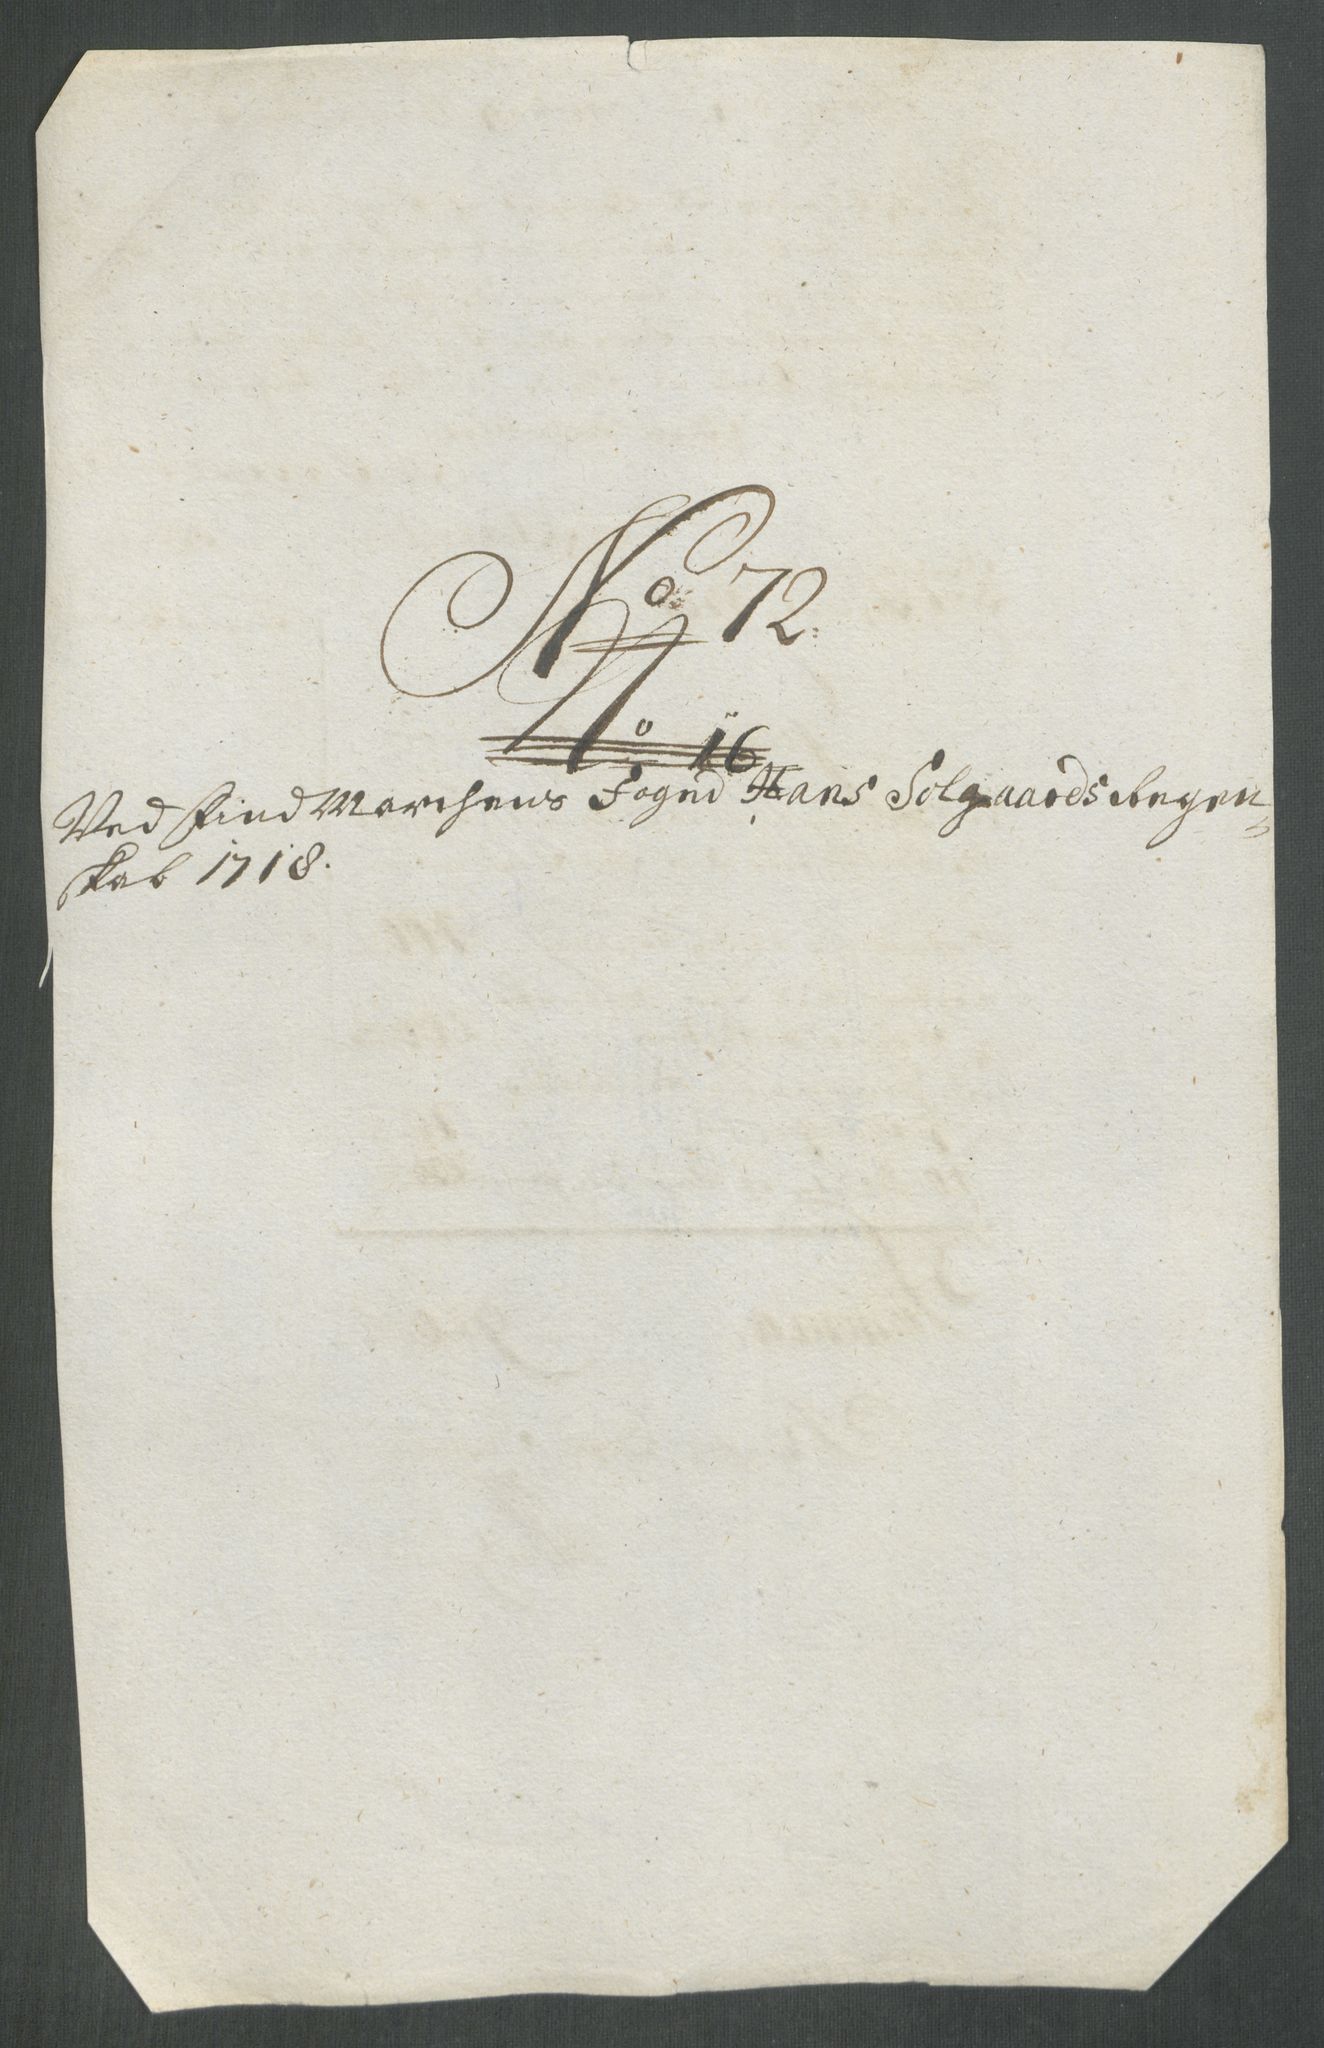 No 72.
No 16
Ved Find Marchens Foged Hans Solgaards Regen
skab 1718.